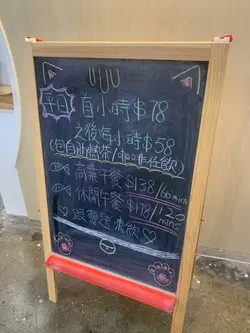 平日 首小時$78
之後每小時$58
(包自助熱茶/咖啡任飲)
商業午餐 $138/60mins
休閒午餐 $178/120mins
♡跟餐送來飲♡